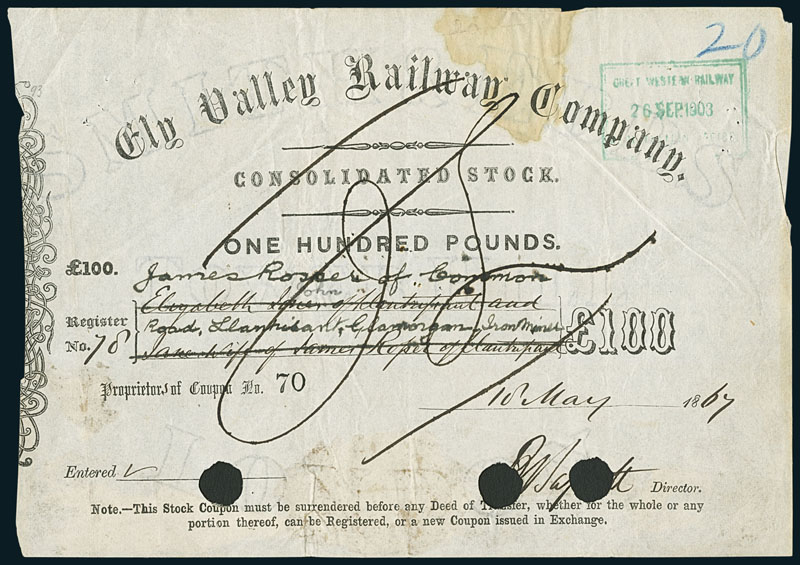 20
GREAT WESTERN RAILWAY
26 SEP.1903
Ely Valley Railway Company.
CONSOLIDATED STOCK.
ONE HUNDRED POUNDS.
£100. James Rosser of "Common
John
Elizabeth of Llantrisant and
Register Road, Llantrisant, Glamorgan, Iron Miner £100
No. 78 Jane Wife of James Roper of Llantrisant
Proprietors of Coupon No. 70
18 May 1867
Entered
Director.
Note.—This Stock Coupon must be surrendered before any Deed of Transfer, whether for the whole or any
portion thereof, can be Registered, or a new Coupon issued in Exchange.